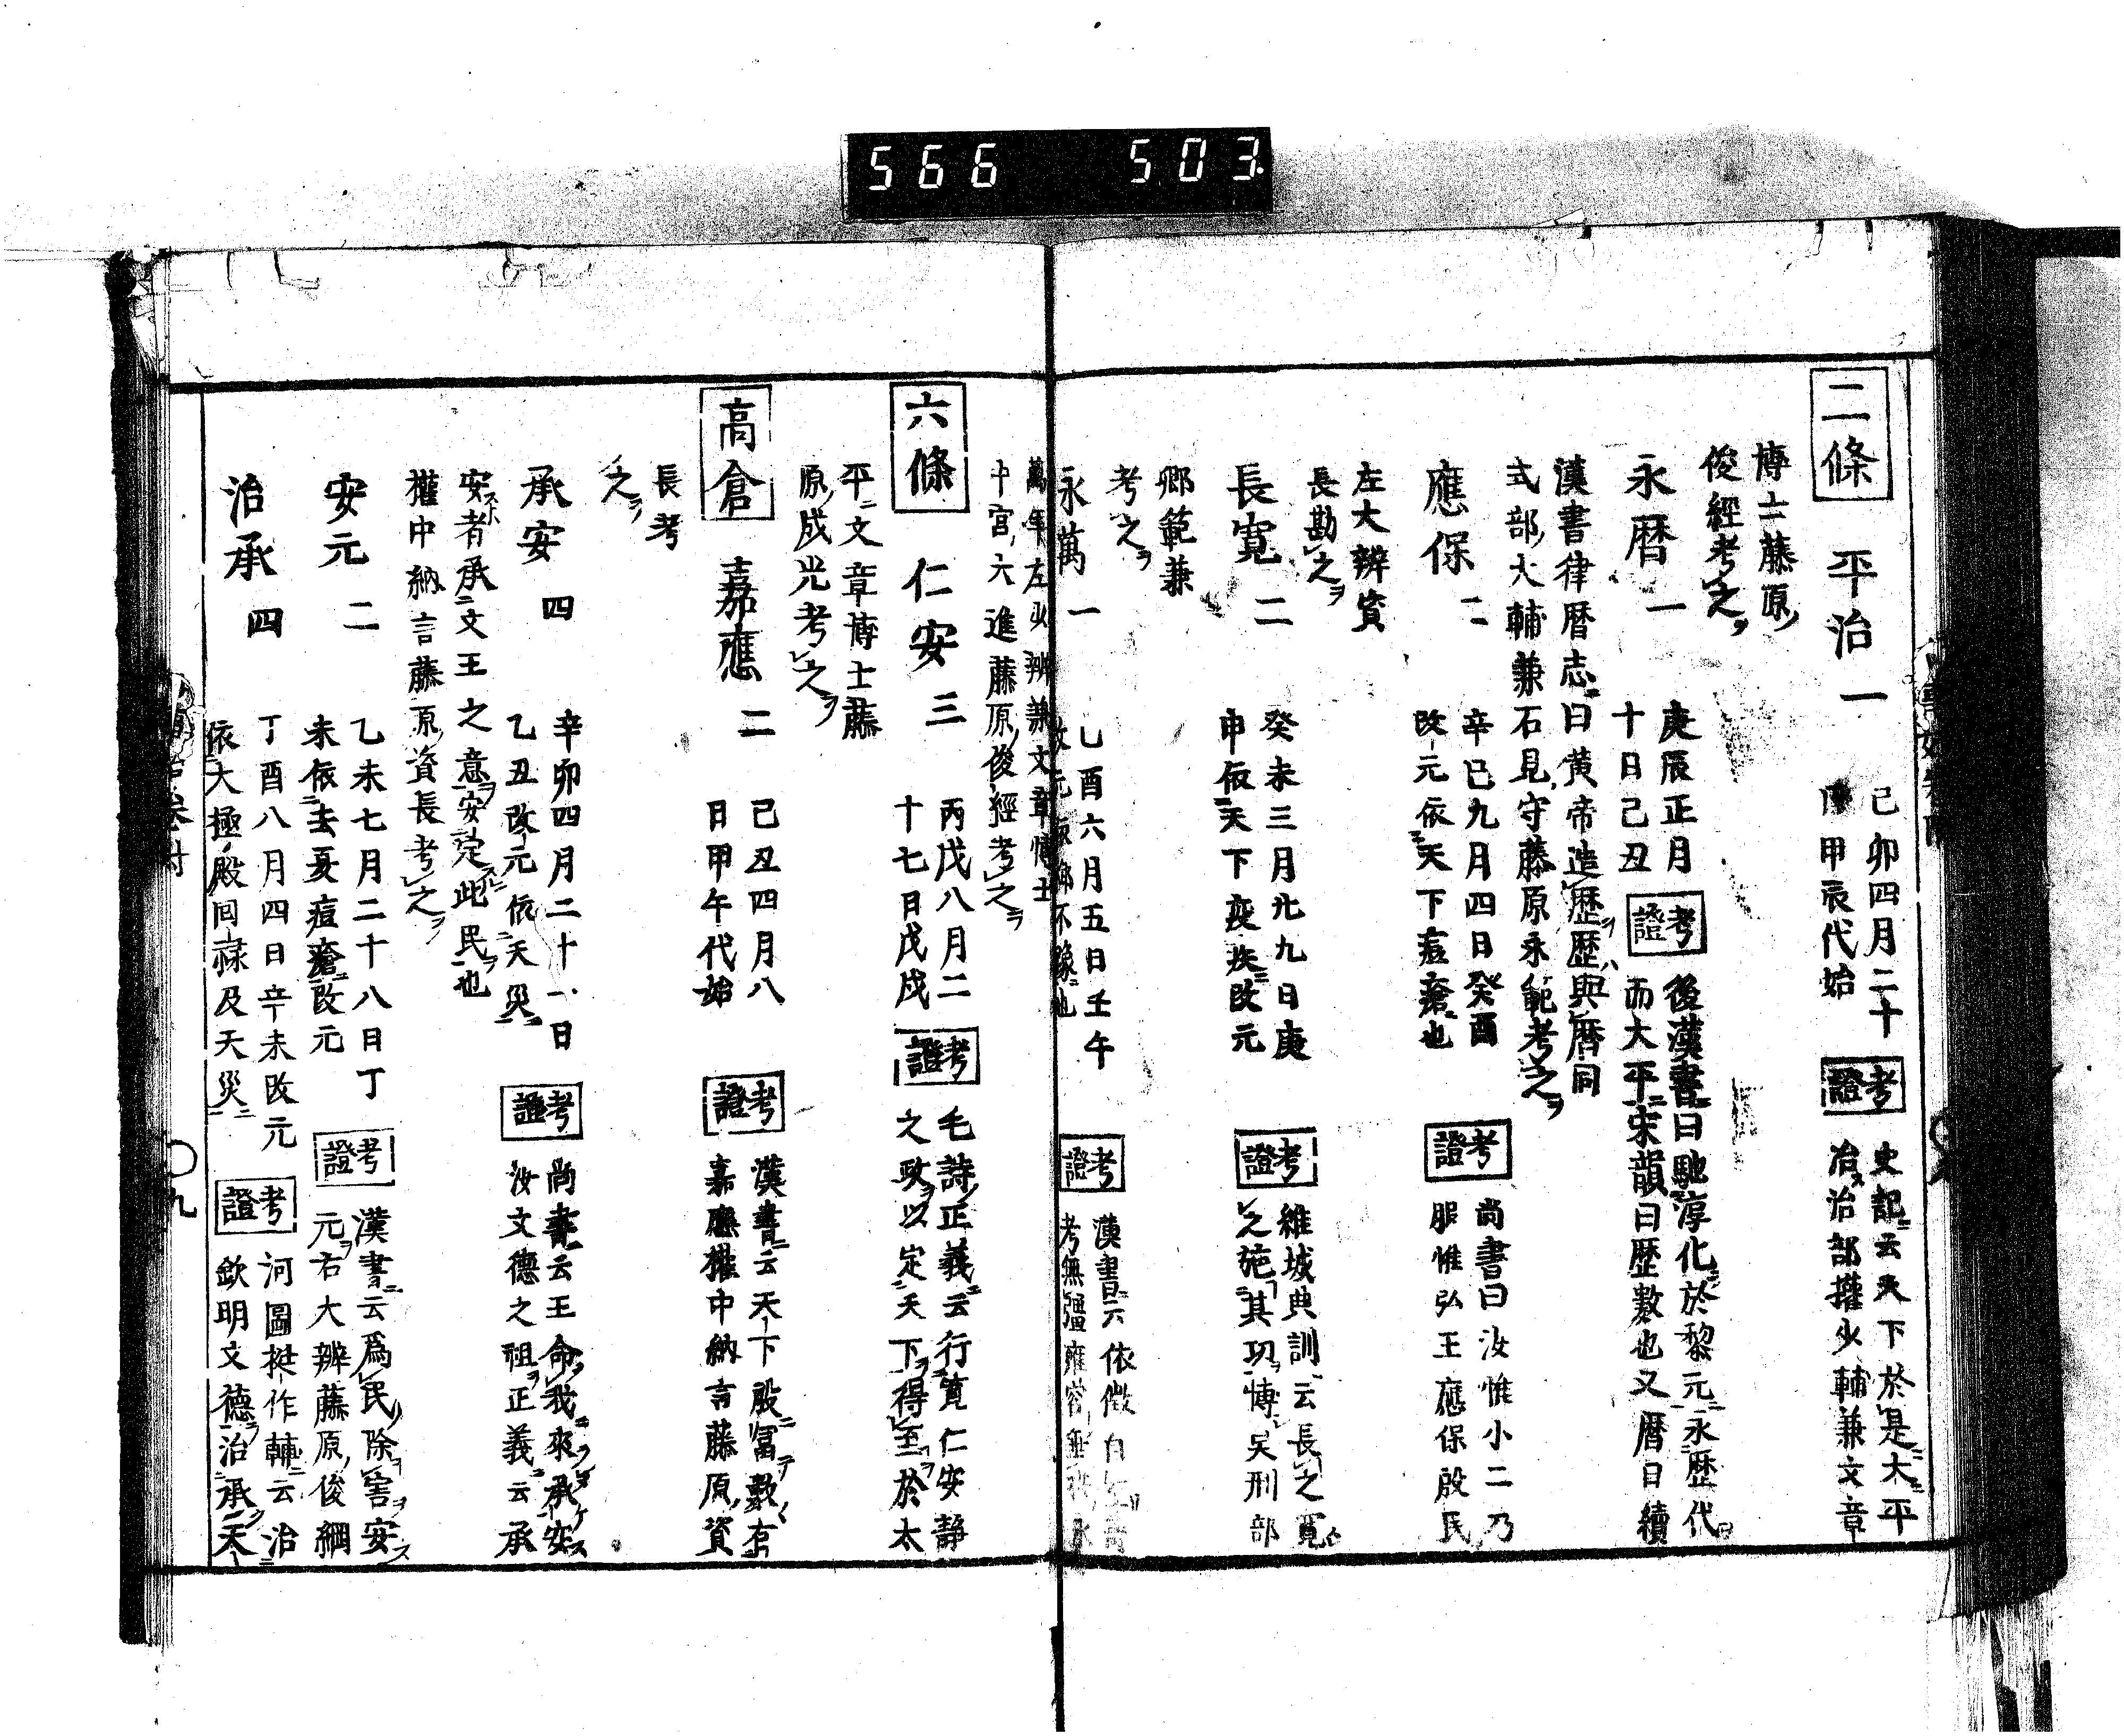 566 503
二條 平治一
己卯四月二十
甲辰代始
考證
史記云天下於是大平
治治部權少輔兼文章
博士藤原
俊經考之
永曆一
庚辰正月
十日己丑
考證
後漢書曰馳淳化於黎元永歷代
而大平宋韻曰歷數也又曆日續
漢書律曆志曰黄帝造歷歷與曆同
式部大輔兼石見守藤原永範考之
應保二
辛巳九月四日癸酉
改元依天下痘瘡也
考證
尚書曰汝惟小二乃
服惟弘王應保殷民
左大辨資
長勘之
長寛二
癸未三月廿九日庚
申依天下疾改元
考證
維城典訓云長之寛
之施其功博矣刑部
卿範兼
考之
永萬一
乙酉六月五日壬午
不豫也
考證
漢書云依徴
考無疆
萬年左少辨兼文章博士
中宮大進藤原俊經考之
六條 仁安三
丙戌八月二
十七日戊戌
考證
毛詩正義云行寛仁安靜
之政以定天下得至於太
平文章博士藤
原成光考之
高倉 嘉應二
己丑四月八
日甲午代始
考證
漢書云天下殷富數有
嘉應權中納言藤原資
長考
之
承安四
辛卯四月二十一日
乙丑改元依天災
考證
尚書云王命我來承安
汝文德之祖正義云承
安者承文王之意安定此民也
權中納言藤原資長考之
安元二
乙未七月二十八日丁
未依去夏痘瘡改元
考證
漢書云爲民除害安
元右大辨藤原俊綱
治承四
丁酉八月四日辛未改元
依大極殿回祿及天災
考證
河圖挺作輔云治
欽明文德治承天
九